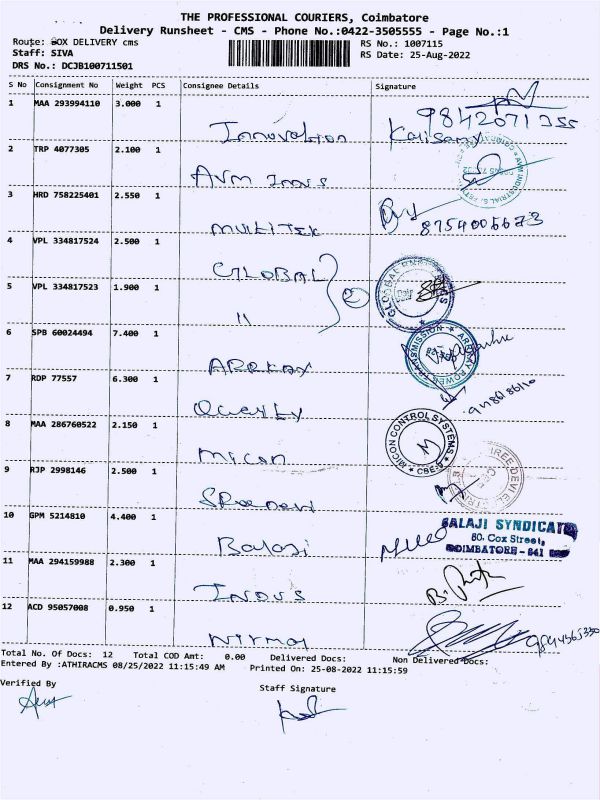 THE PROFESSIONAL COURIERS, Coimbatore
Delivery Runsheet - CMS - Phone No.:0422-3505555 - Page No.:1
Route: BOX DELIVERY cms
RS No.: 1007115
Staff: SIVA
RS Date: 25-Aug-2022
DRS No.: DCJB100711501
S No Consignment No Weight PCS Consignee Details Signature
1 MAA 293994110 3.000 1 Innovation
2 TRP 4077305 2.100 1 AVM Indus
3 HRD 758225401 2.550 1 MULTITEK 8754005673
4 VPL 334817524 2.500 1 GLOBAL
5 VPL 334817523 1.900 1 11 2
6 SPB 60024494 7.400 1 TRANSMISSION
7 RDP 77557 6.300 1
8 MAA 286760522 2.150 1 Micon MICON CONTROL SYSTEMS CBE-6
9 RJP 2998146 2.500 1
10 GPM 5214810 4.400 1 Balaji
BALAJI SYNDICATE
80. Cox Street,
COIMBATORE - 641
11 MAA 294159988 2.300 1 INDUS
12 ACD 95057008 0.950 1 Nirmal
Total No. Of Docs: 12 Total COD Amt: 0.00 Delivered Docs: Non Delivered Docs:
Entered By :ATHIRACMS 08/25/2022 11:15:49 AM Printed On: 25-08-2022 11:15:59
Verified By
Staff Signature